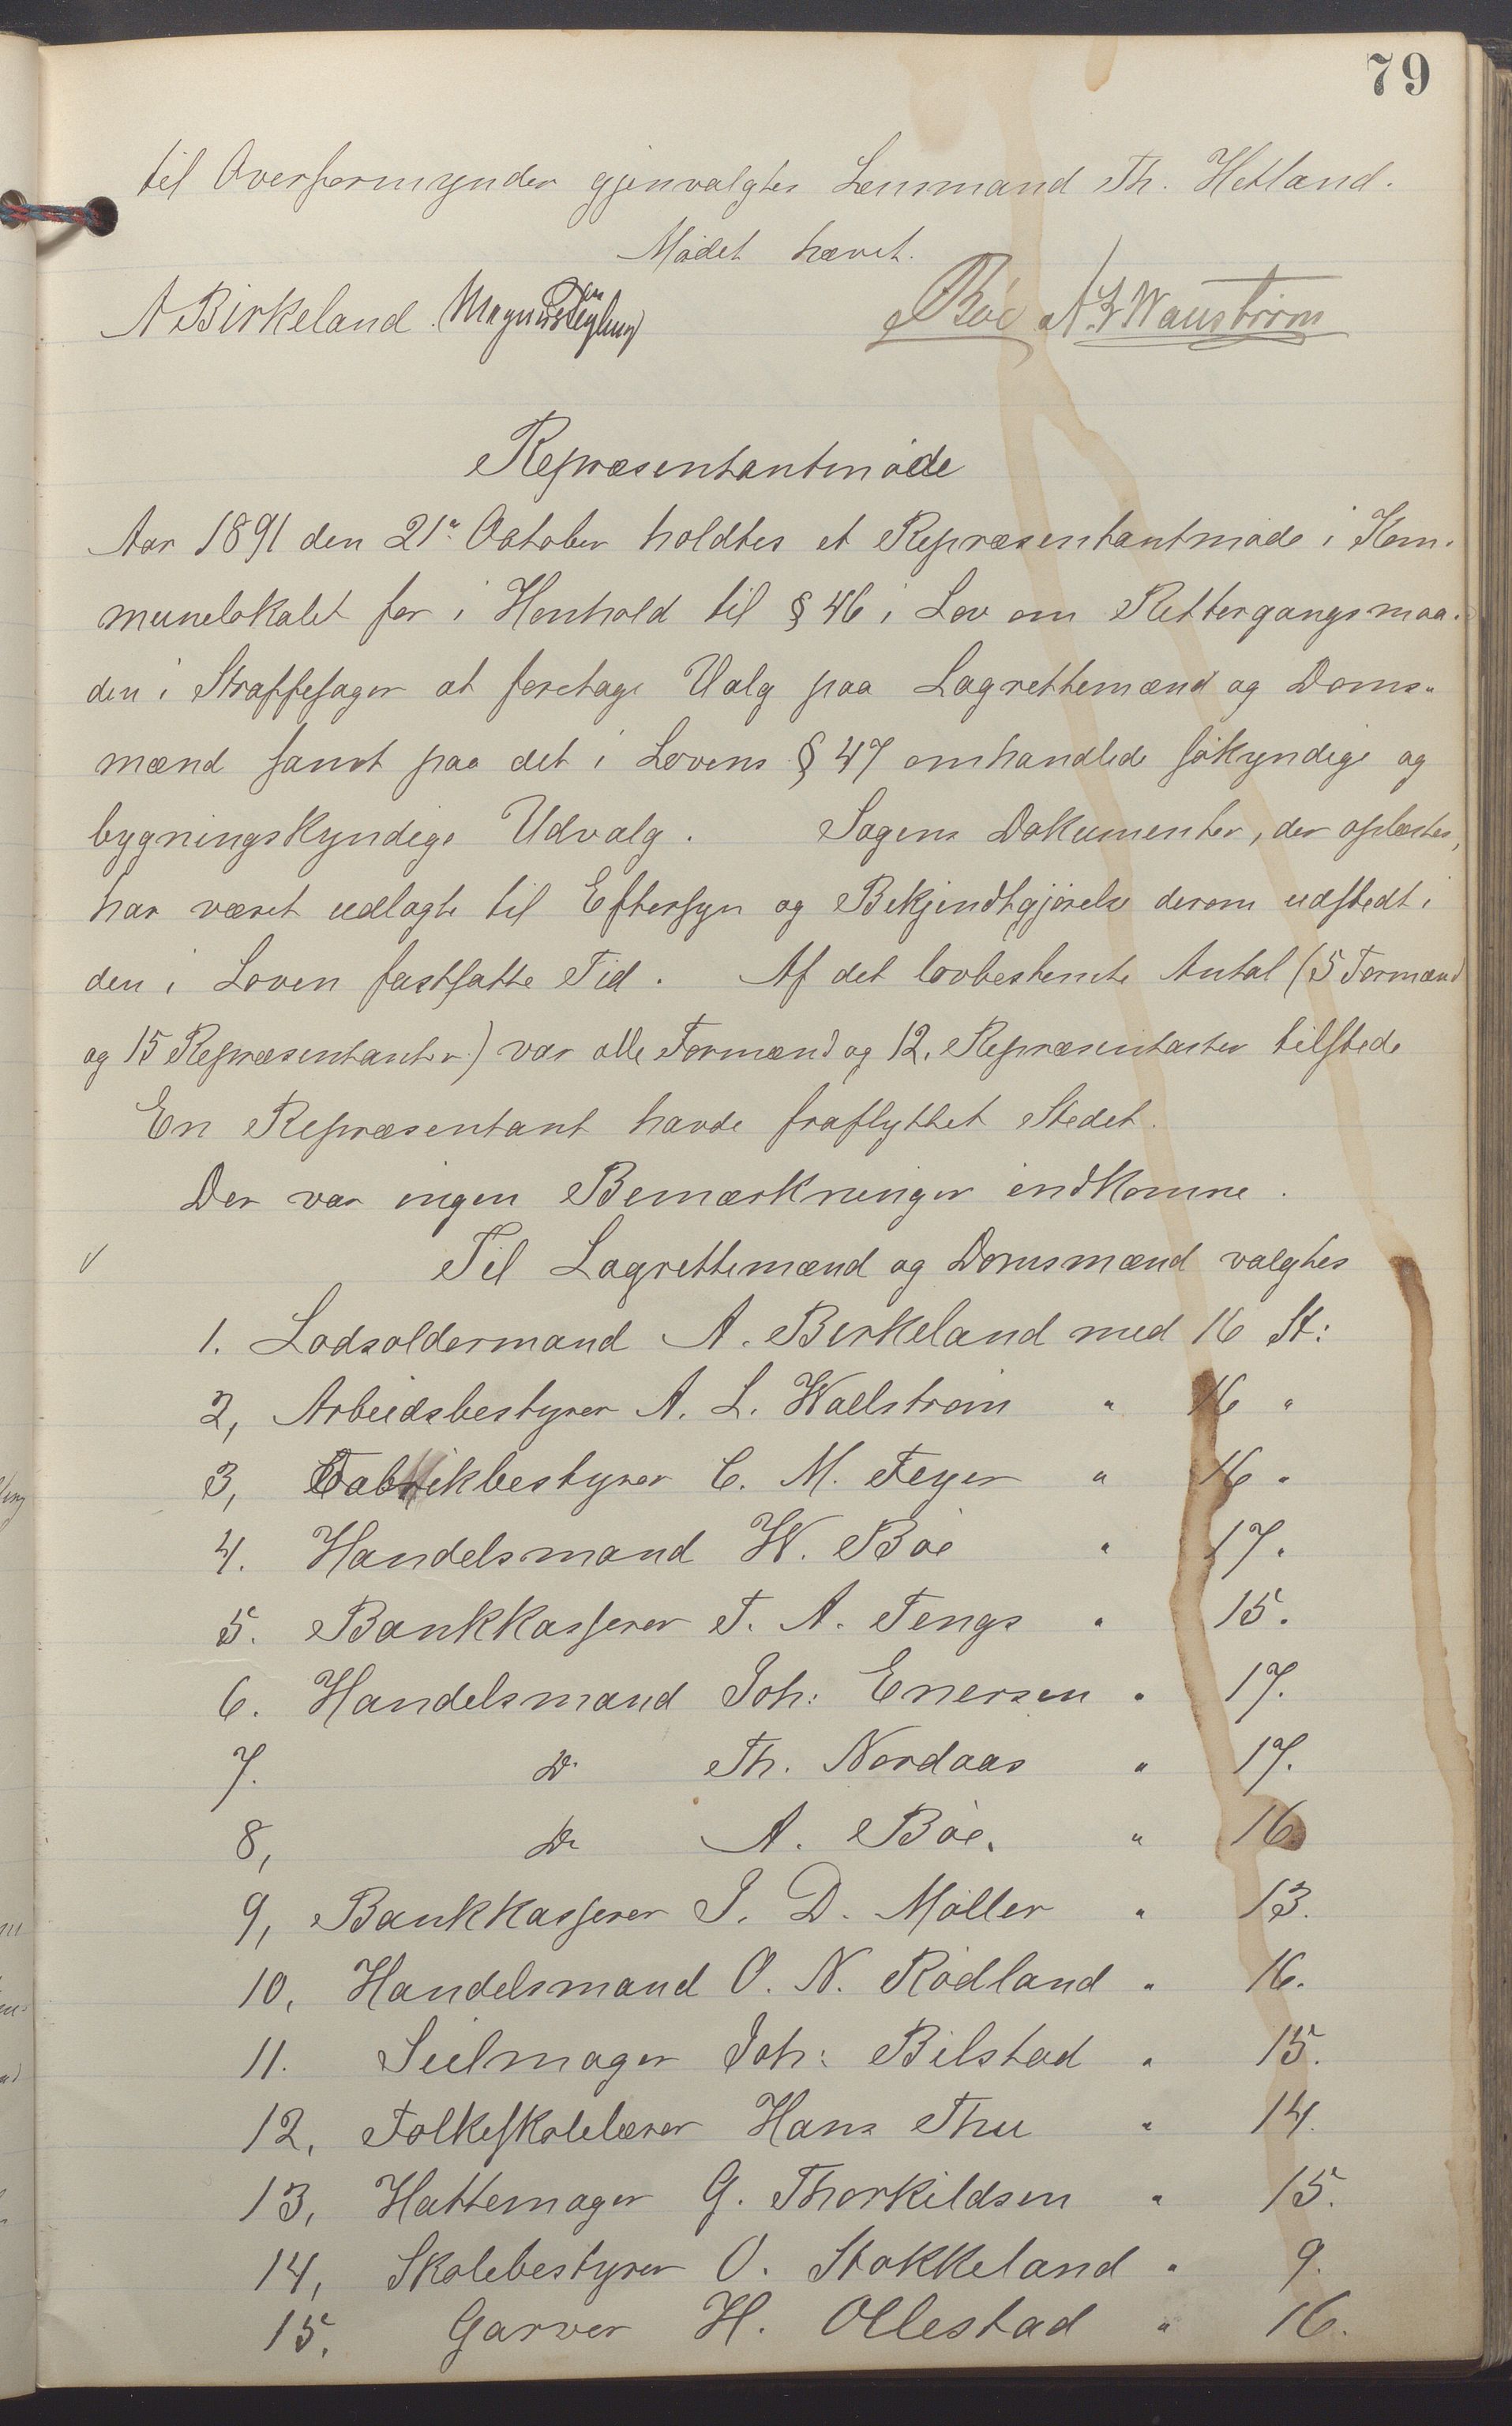 79
til Overformynder gjenvalgtes Lensmand Th. Hetland.
Mödet hævet.
A Birkeland. Magnus Böe A. L. Wallström
Repræsentantmöde
Aar 1891 den 21" October holdtes et Repræsentantmöde i Kom-
munelokalet for i Henhold til § 46 i Lov om Rettergangsmaa-
den i Straffesager at foretage Valg paa Lagrettemænd og Doms-
mænd samt paa det i Lovens § 47 omhandlede sökyndige og
bygningskyndige Udvalg. Sagens Dokumenter, der oplæstes,
har været udlagte til Eftersyn og Bekjendtgjörelse derom udstedt i
den i Loven fastsatte Tid. Af det lovbestemte Antal (5 Formænd
og 15 Repræsentanter) var alle Formænd og 12. Repræsentanter tilstede
En Repræsentant havde fraflyttet Stedet.
Der var ingen Bemærkninger indkomne.
Til Lagrettemænd og Domsmænd valgtes
1. Lodsoldermand A. Birkeland med 16 St:
2, Arbeidsbestyrer A. L. Wallström " 16 "
3, Fabrikbestyrer C. M. Feyer " 16 "
4. Handelsmand W. Böe " 17.
5. Bankkasserer T. A. Tengs " 15.
6. Handelsmand Joh: Enersen " 17.
7. Do Th. Nordaas " 17.
8, Do A. Böe. " 16
9, Bankkasserer J. D. Möller " 13.
10, Handelsmand O. N. Rödland " 16.
11. Seilmager Joh: Bilstad " 15.
12, Folkeskolelærer Hans Thu " 14.
13, Hattemager G. Thorkildsen " 15.
14, Skolebestyrer O. Stokkeland " 9.
15. Garver H. Ollestad " 16.